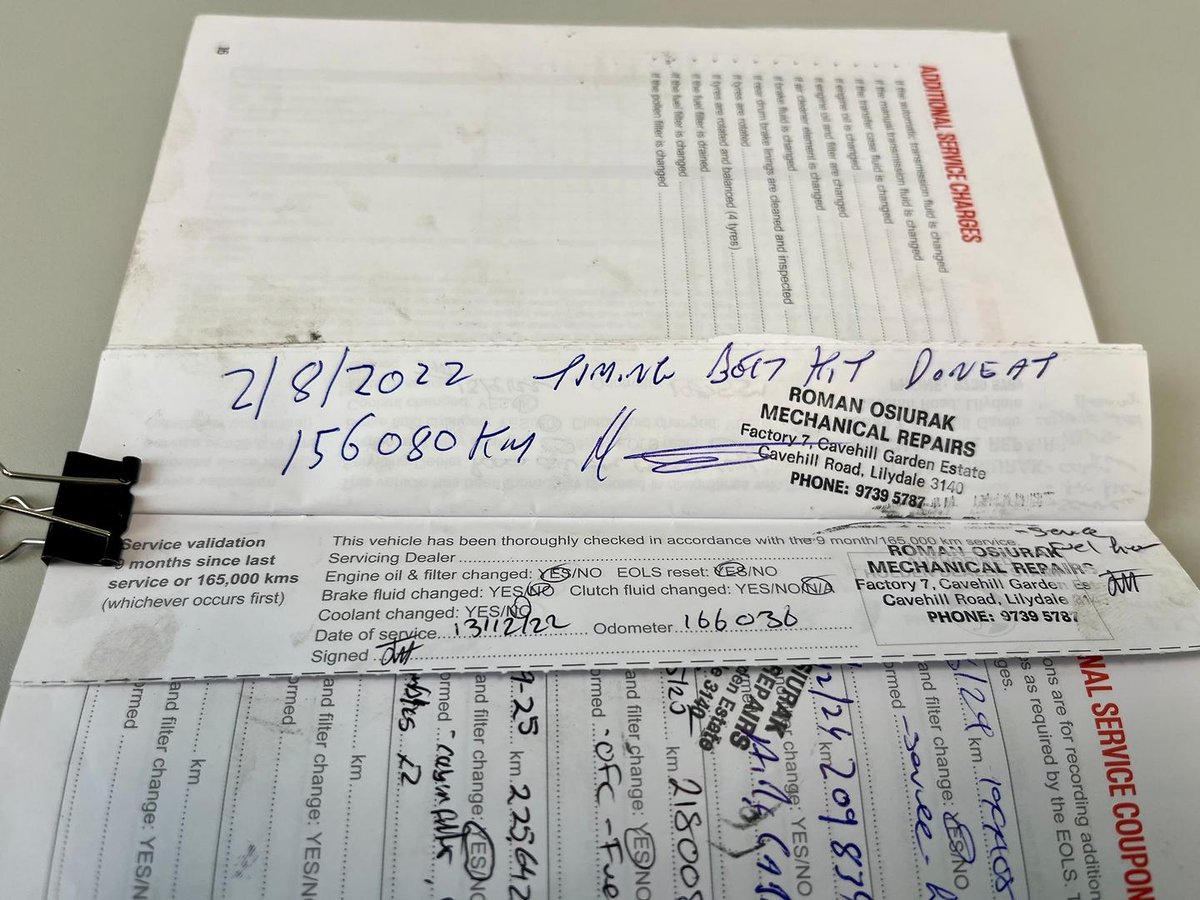 16
ADDITIONAL SERVICE CHARGES
If the automatic transmission fluid is changed
If the manual transmission fluid is changed
If the transfer case fluid is changed
If engine oil is changed
If engine oil and filter are changed
If air cleaner element is changed
If brake fluid is changed
If rear drum brake linings are cleaned and inspected
If tyres are rotated
If tyres are rotated and balanced (4 tyres)
If the fuel filter is drained
If the fuel filter is changed
If the pollen filter is changed
2/8/2022 TIMING BELT KIT DONE AT
156080 KM
ROMAN OSIURAK
MECHANICAL REPAIRS
Factory 7, Cavehill Garden Estate
Cavehill Road, Lilydale 3140
PHONE: 9739 5787
Service validation
9 months since last
service or 165,000 kms
(whichever occurs first)
This vehicle has been thoroughly checked in accordance with the 9 month/165,000 km service.
Servicing Dealer
Engine oil & filter changed: YES/NO EOLS reset: YES/NO
Brake fluid changed: YES/NO Clutch fluid changed: YES/NO N/A
Coolant changed: YES/NO
Date of service 13/12/22 Odometer 166036
Signed
- Service
ROMAN OSIURAK
MECHANICAL REPAIRS
Factory 7, Cavehill Garden Es
Cavehill Road, Lilydale
PHONE: 9739 5787
NAL SERVICE COUPON
ons are for recording addition
s as required by the EOLS. T
ges.
/24 km
and filter change: YES/NO
ormed - service -
12/24 km 209834
change: YES/NO
OSIURAK
REPAIRS
den Estate
e 3140
/25 km 218008
and filter change: YES/NO
ormed - OFC - Fue
9-25 km 225642
and filter change: YES/NO
ormed - cabin
x2
km
and filter change: YES/NO
ormed
km
and filter change: YES/N
ormed